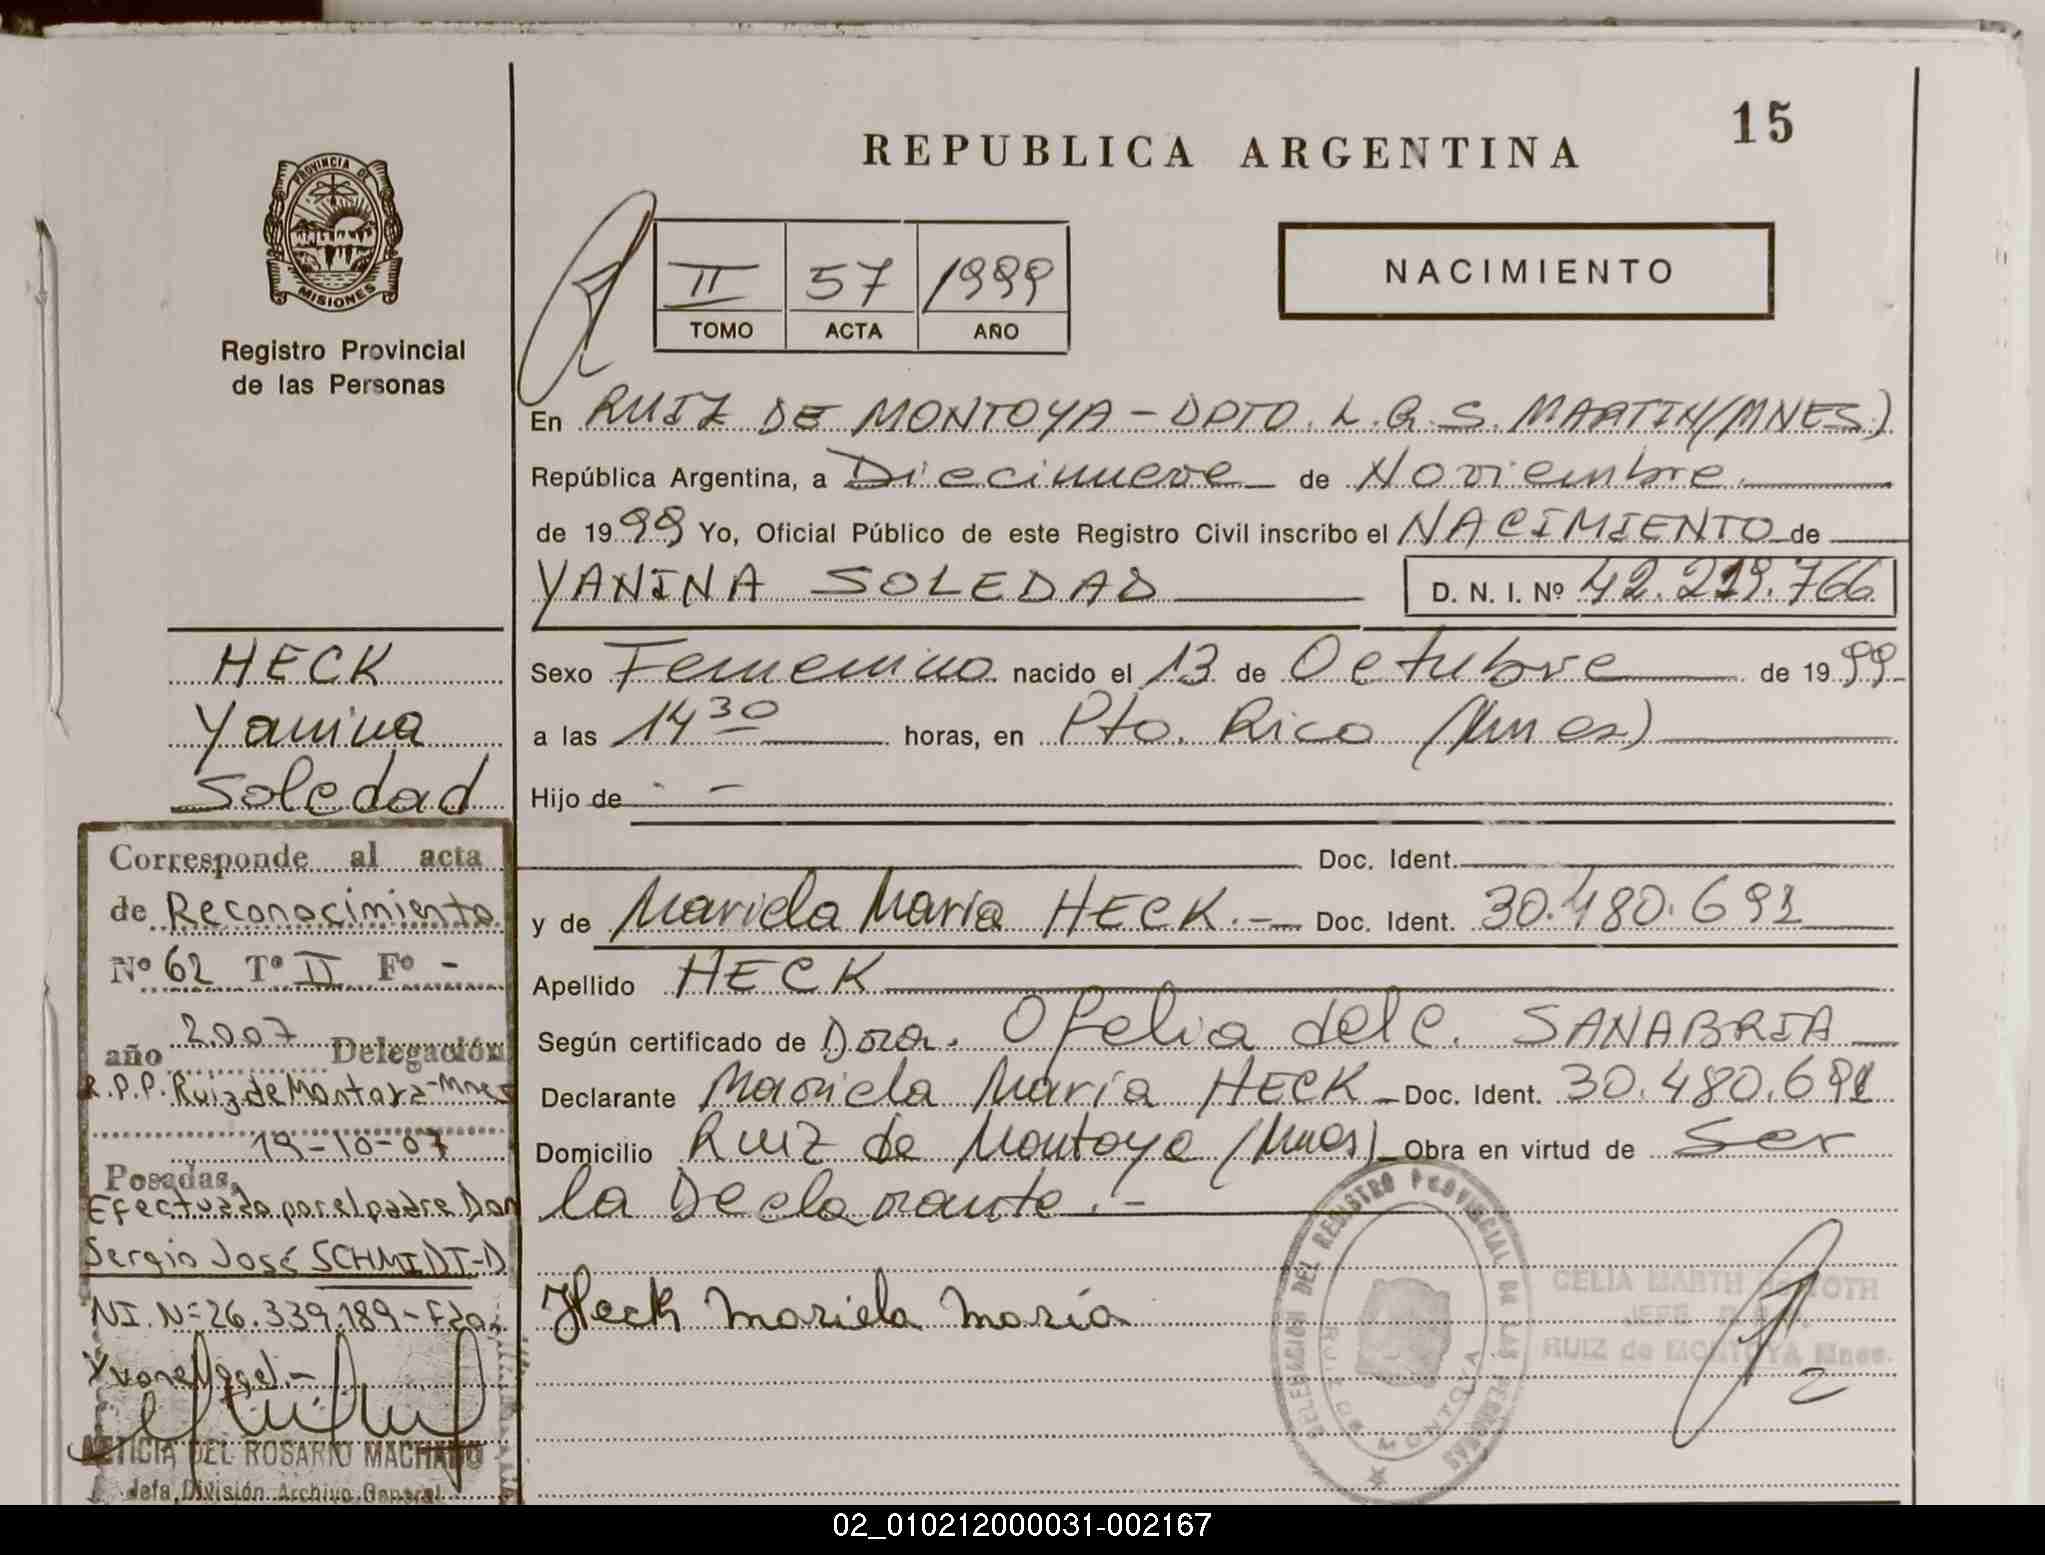 15
REPUBLICA ARGENTINA
PROVINCIA DE
MISIONES
Registro Provincial
de las Personas
II 57 1999
TOMO ACTA AÑO
NACIMIENTO
En RUIZ DE MONTOYA - DPTO. L. G. S. MARTIN (MNES)
República Argentina, a Diecinueve de Noviembre
de 1999 Yo, Oficial Público de este Registro Civil inscribo el NACIMIENTO de
YANINA SOLEDAD D. N. I. Nº 42.219.766
Sexo Femenino nacido el 13 de Octubre de 1999
a las 14 30 horas, en Pto. Rico (Mnes)
Hijo de - -
Doc. Ident.
y de Mariela Maria HECK.- Doc. Ident. 30.480.691
Apellido HECK
Según certificado de Dra. Ofelia del C. SANABRIA
Declarante Mariela María HECK - Doc. Ident. 30.480.691
Domicilio Ruiz de Montoya (Mnes) Obra en virtud de Ser
la Declarante.-
Heck Mariela María
DELEGACION DEL REGISTRO PROVINCIAL DE LAS PERSONAS
RUIZ DE MONTOYA
CELIA MARTH de TOTH
JEFE
RUIZ de MONTOYA Mnes.
HECK
Yanina
Soledad
Corresponde al acta
de Reconocimiento
Nº 62 Tº II Fº -
año 2007 Delegación
R.P.P. Ruiz de Montoya-Mnes
19-10-07
Posadas,
Efectuado por el padre Don
Sergio José SCHMIDT-D
NI. Nº 26.339.189-Fdo.
Yvone Vogel.-
LETICIA DEL ROSARIO MACHADO
Jefa División Archivo General
02_010212000031-002167